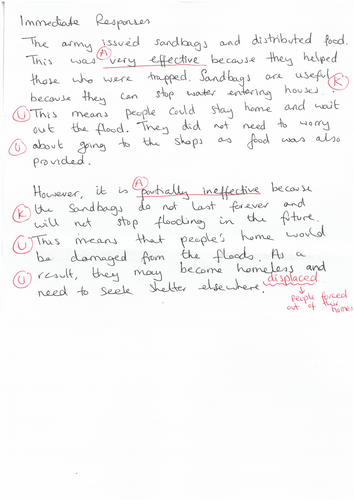 Immediate Responses
The army issued sandbags and distributed food.
A
This was very effective because they helped
those who were trapped. Sandbags are useful K
because they can stop water entering houses.
U This means people could stay home and wait
out the flood. They did not need to worry
U about going to the shops as food was also
provided.
A
However, it is partially ineffective because
K the sandbags do not last forever and
will not stop flooding in the future.
U This means that people's home would
be damaged from the floods. As a
U result, they may become homeless and
displaced
need to seek shelter elsewhere.
People forced
out of their
homes